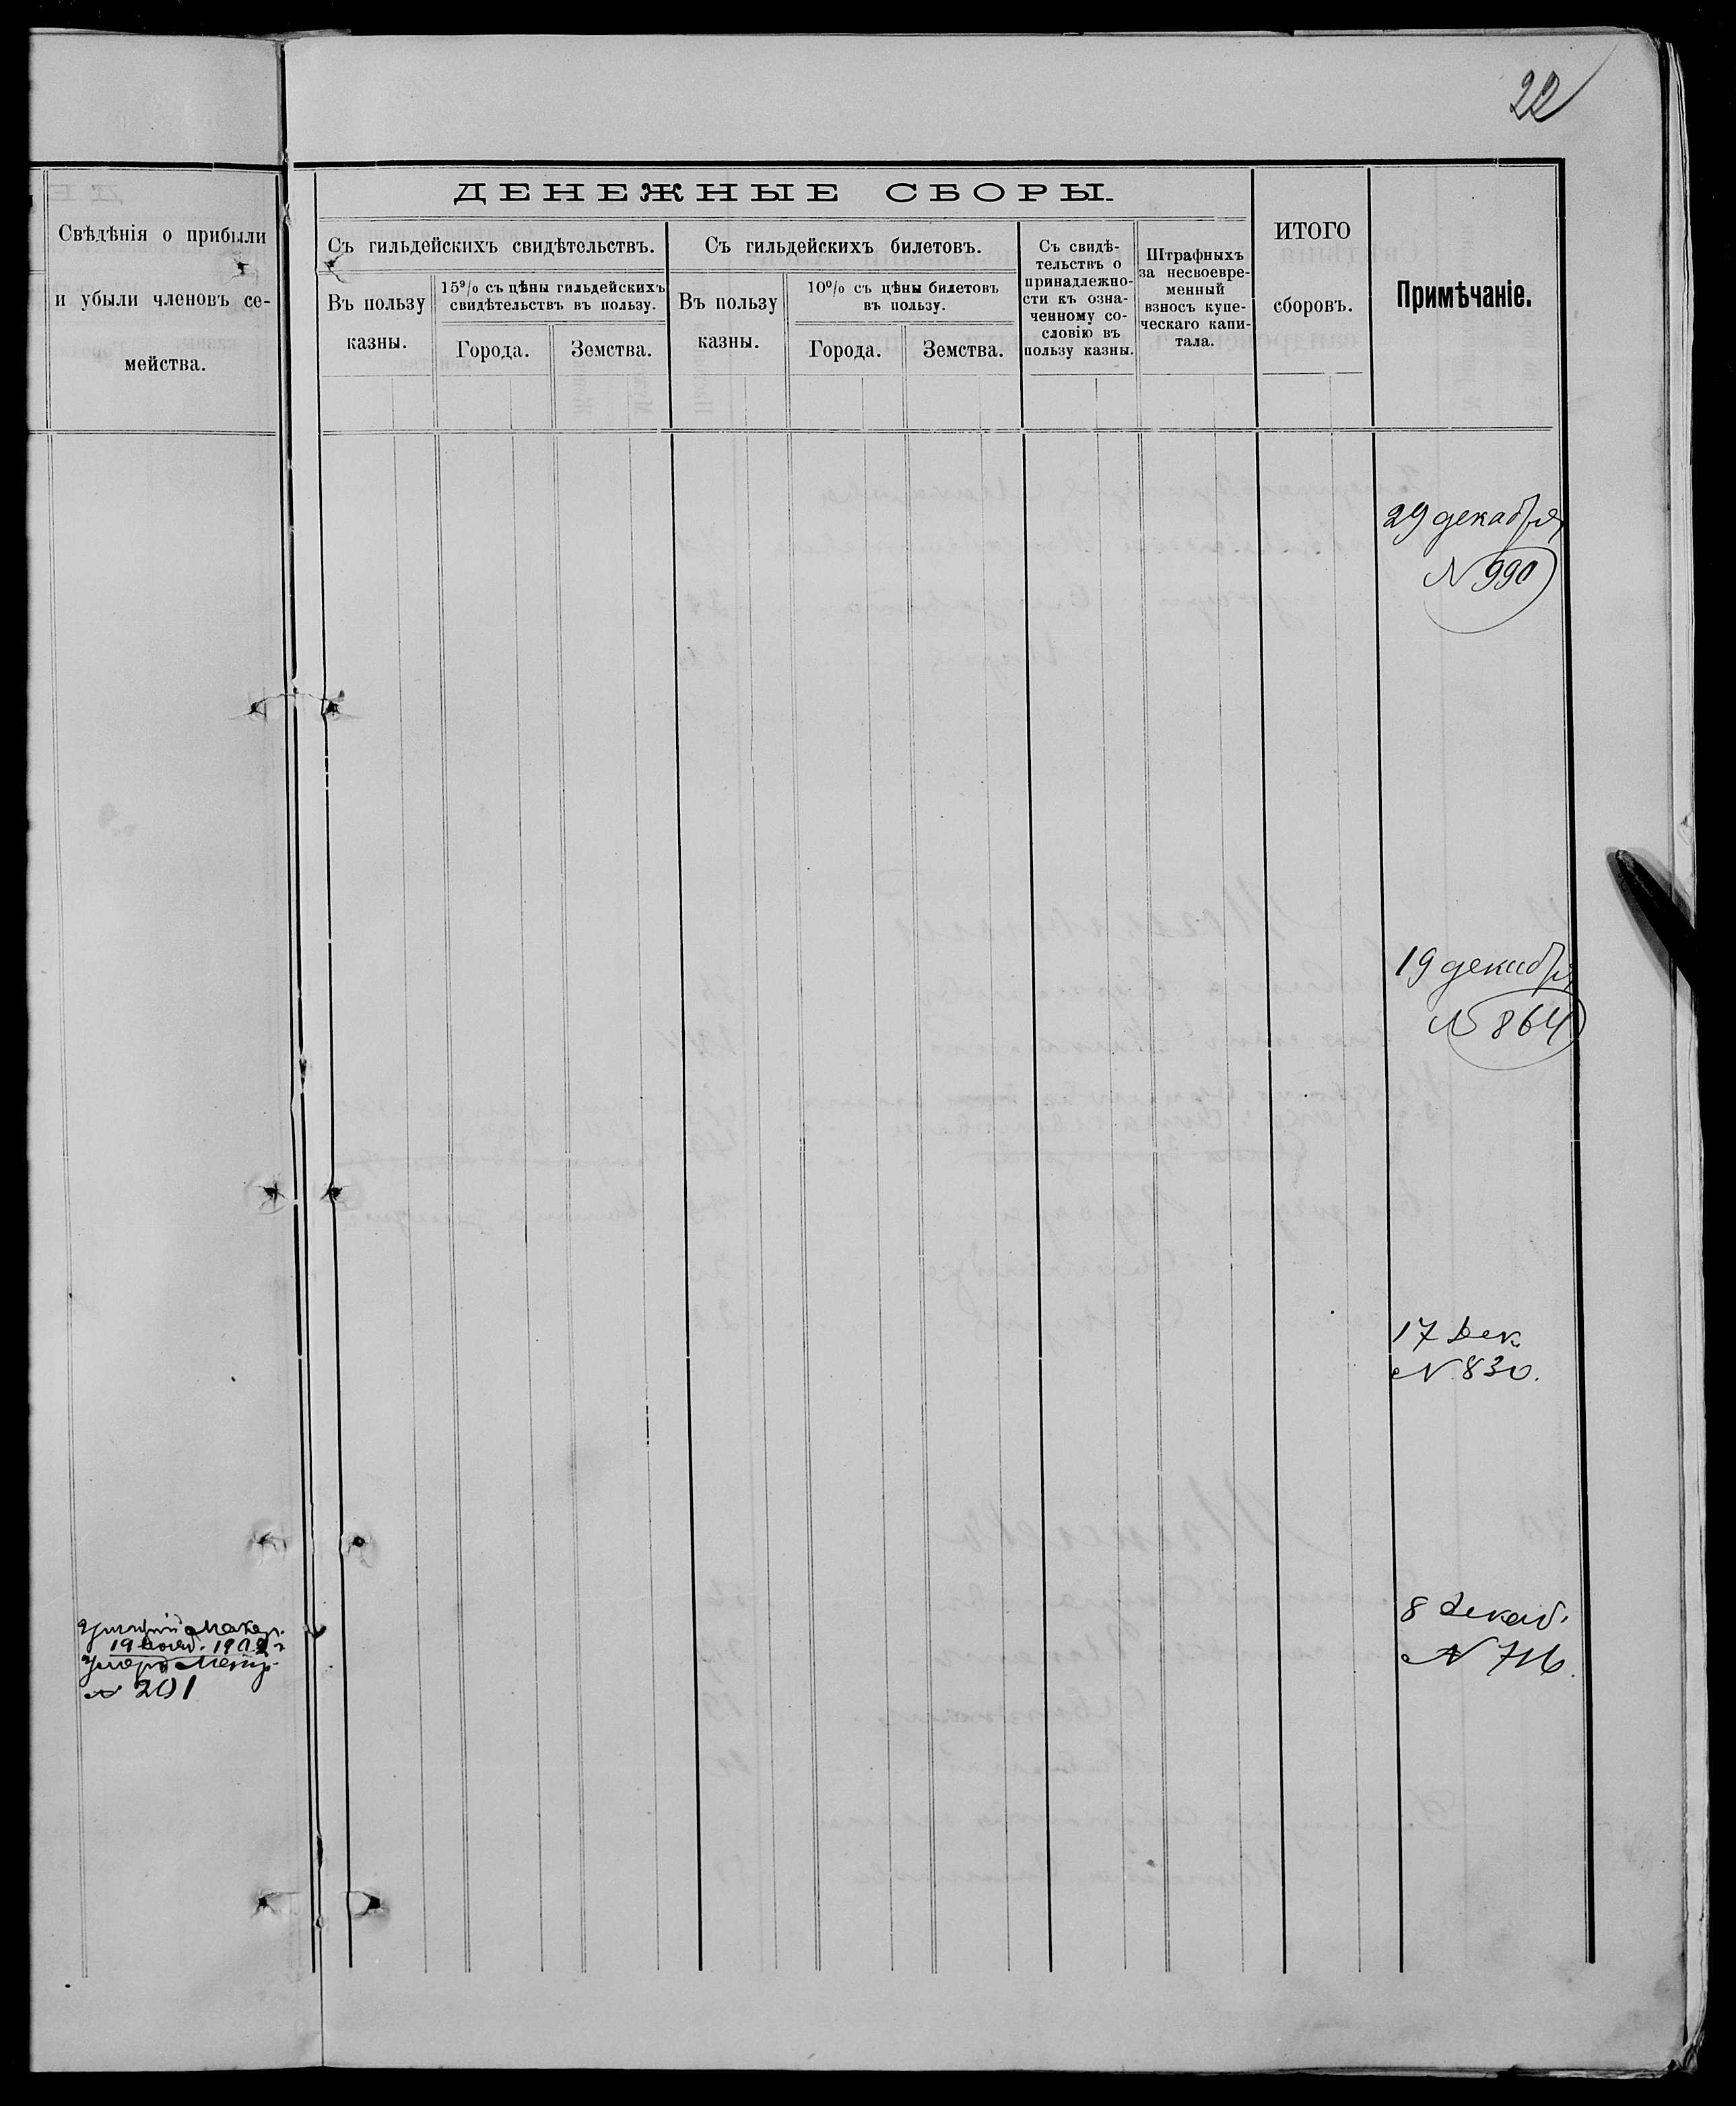 22
Свѣдѣнія о прибыли
и убыли членовъ се-
мейства.
ДЕНЕЖНЫЕ СБОРЫ.
Съ гильдейскихъ свидѣтельствъ.
Въ пользу
казны.
15% съ цѣны гильдейскихъ
свидѣтельствъ въ пользу.
Города.
Земства.
Съ гильдейскихъ билетовъ.
Въ пользу
казны.
10% съ цѣны билетовъ
въ пользу.
Города.
Земства.
Съ свидѣ-
тельствъ о
принадлежно-
сти къ озна-
ченному со-
словію въ
пользу казны.
Штрафныхъ
за несвоевре-
менный
взносъ купе-
ческаго капи-
тала.
ИТОГО
сборовъ.
Примѣчаніе.
29 декабря
N 990
19 декабря
N 864
17 Дек
N 830.
8 Декаб.
N 716.
19 1902
умеръ
N 201